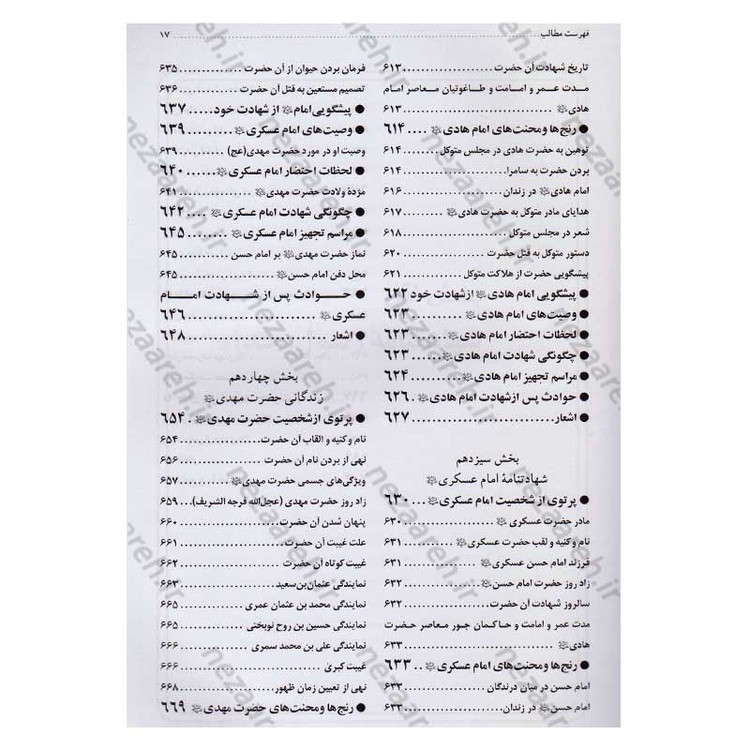 فهرست مطالب .......... ۱۷
تاریخ شهادت آن حضرت .......... ۶۱۳
مدت عمر و امامت و طاغوتیان معاصر امام
هادی .......... ۶۱۳
● رنج‌ها و محنت‌های امام هادی .... ۶۱۴
توهین به حضرت هادی در مجلس متوکل .... ۶۱۴
بردن حضرت به سامرا .......... ۶۱۴
امام هادی در زندان .......... ۶۱۶
هدایای مادر متوکل به حضرت هادی .... ۶۱۷
شعر در مجلس متوکل .......... ۶۱۸
دستور متوکل به قتل حضرت .......... ۶۲۰
پیشگویی حضرت از هلاکت متوکل .... ۶۲۱
● پیشگویی امام هادی ازشهادت خود ۶۲۲
● وصیت‌های امام هادی .......... ۶۲۳
● لحظات احتضار امام هادی .... ۶۲۳
● چگونگی شهادت امام هادی .... ۶۲۳
● مراسم تجهیز امام هادی .... ۶۲۴
● حوادث پس ازشهادت امام هادی . ۶۲۶
● اشعار .......... ۶۲۷
بخش سیزدهم
شهادتنامهٔ امام عسکری
● پرتوی از شخصیت امام عسکری ... ۶۳۰
مادر حضرت عسکری .......... ۶۳۰
نام و کنیه و لقب حضرت عسکری .... ۶۳۱
فرزند امام حسن عسکری .......... ۶۳۱
زاد روز حضرت امام حسن .......... ۶۳۲
سالروز شهادت آن حضرت .......... ۶۳۲
مدت عمر و امامت و حاکمان جور معاصر حضرت
هادی .......... ۶۳۳
● رنج‌ها و محنت‌های امام عسکری . ۶۳۳
امام حسن در میان درندگان .......... ۶۳۳
امام حسن در زندان .......... ۶۳۳
فرمان بردن حیوان از آن حضرت .......... ۶۳۵
تصمیم مستعین به قتل آن حضرت .... ۶۳۶
● پیشگویی امام از شهادت خود ..... ۶۳۷
● وصیت‌های امام عسکری .......... ۶۳۹
وصیت او در مورد حضرت مهدی(عج) .... ۶۳۹
● لحظات احتضار امام عسکری ...... ۶۴۰
مژدهٔ ولادت حضرت مهدی .......... ۶۴۱
● چگونگی شهادت امام عسکری .... ۶۴۲
● مراسم تجهیز امام عسکری ..... ۶۴۵
نماز حضرت مهدی بر امام حسن .... ۶۴۵
محل دفن امام حسن .......... ۶۴۵
● حوادث پس از شهادت امام
عسکری .......... ۶۴۶
● اشعار .......... ۶۴۸
بخش چهاردهم
زندگانی حضرت مهدی
● پرتوی ازشخصیت حضرت مهدی . ۶۵۴
نام و کنیه و القاب آن حضرت .......... ۶۵۴
نهی از بردن نام آن حضرت .......... ۶۵۶
ویژگی‌های جسمی حضرت مهدی .... ۶۵۷
زاد روز حضرت مهدی (عجل‌الله فرجه الشریف) ... ۶۵۹
پنهان شدن آن حضرت .......... ۶۶۰
علت غیبت آن حضرت .......... ۶۶۱
غیبت کوتاه آن حضرت .......... ۶۶۲
نمایندگی عثمان‌بن‌سعید .......... ۶۶۳
نمایندگی محمد بن عثمان عمری .... ۶۶۵
نمایندگی حسین بن روح نوبختی .... ۶۶۵
نمایندگی علی بن محمد سمری .... ۶۶۶
غیبت کبریٰ .......... ۶۶۶
نهی از تعیین زمان ظهور .......... ۶۶۸
● رنج‌ها و محنت‌های حضرت مهدی ۶۶۹
nezaareh.ir